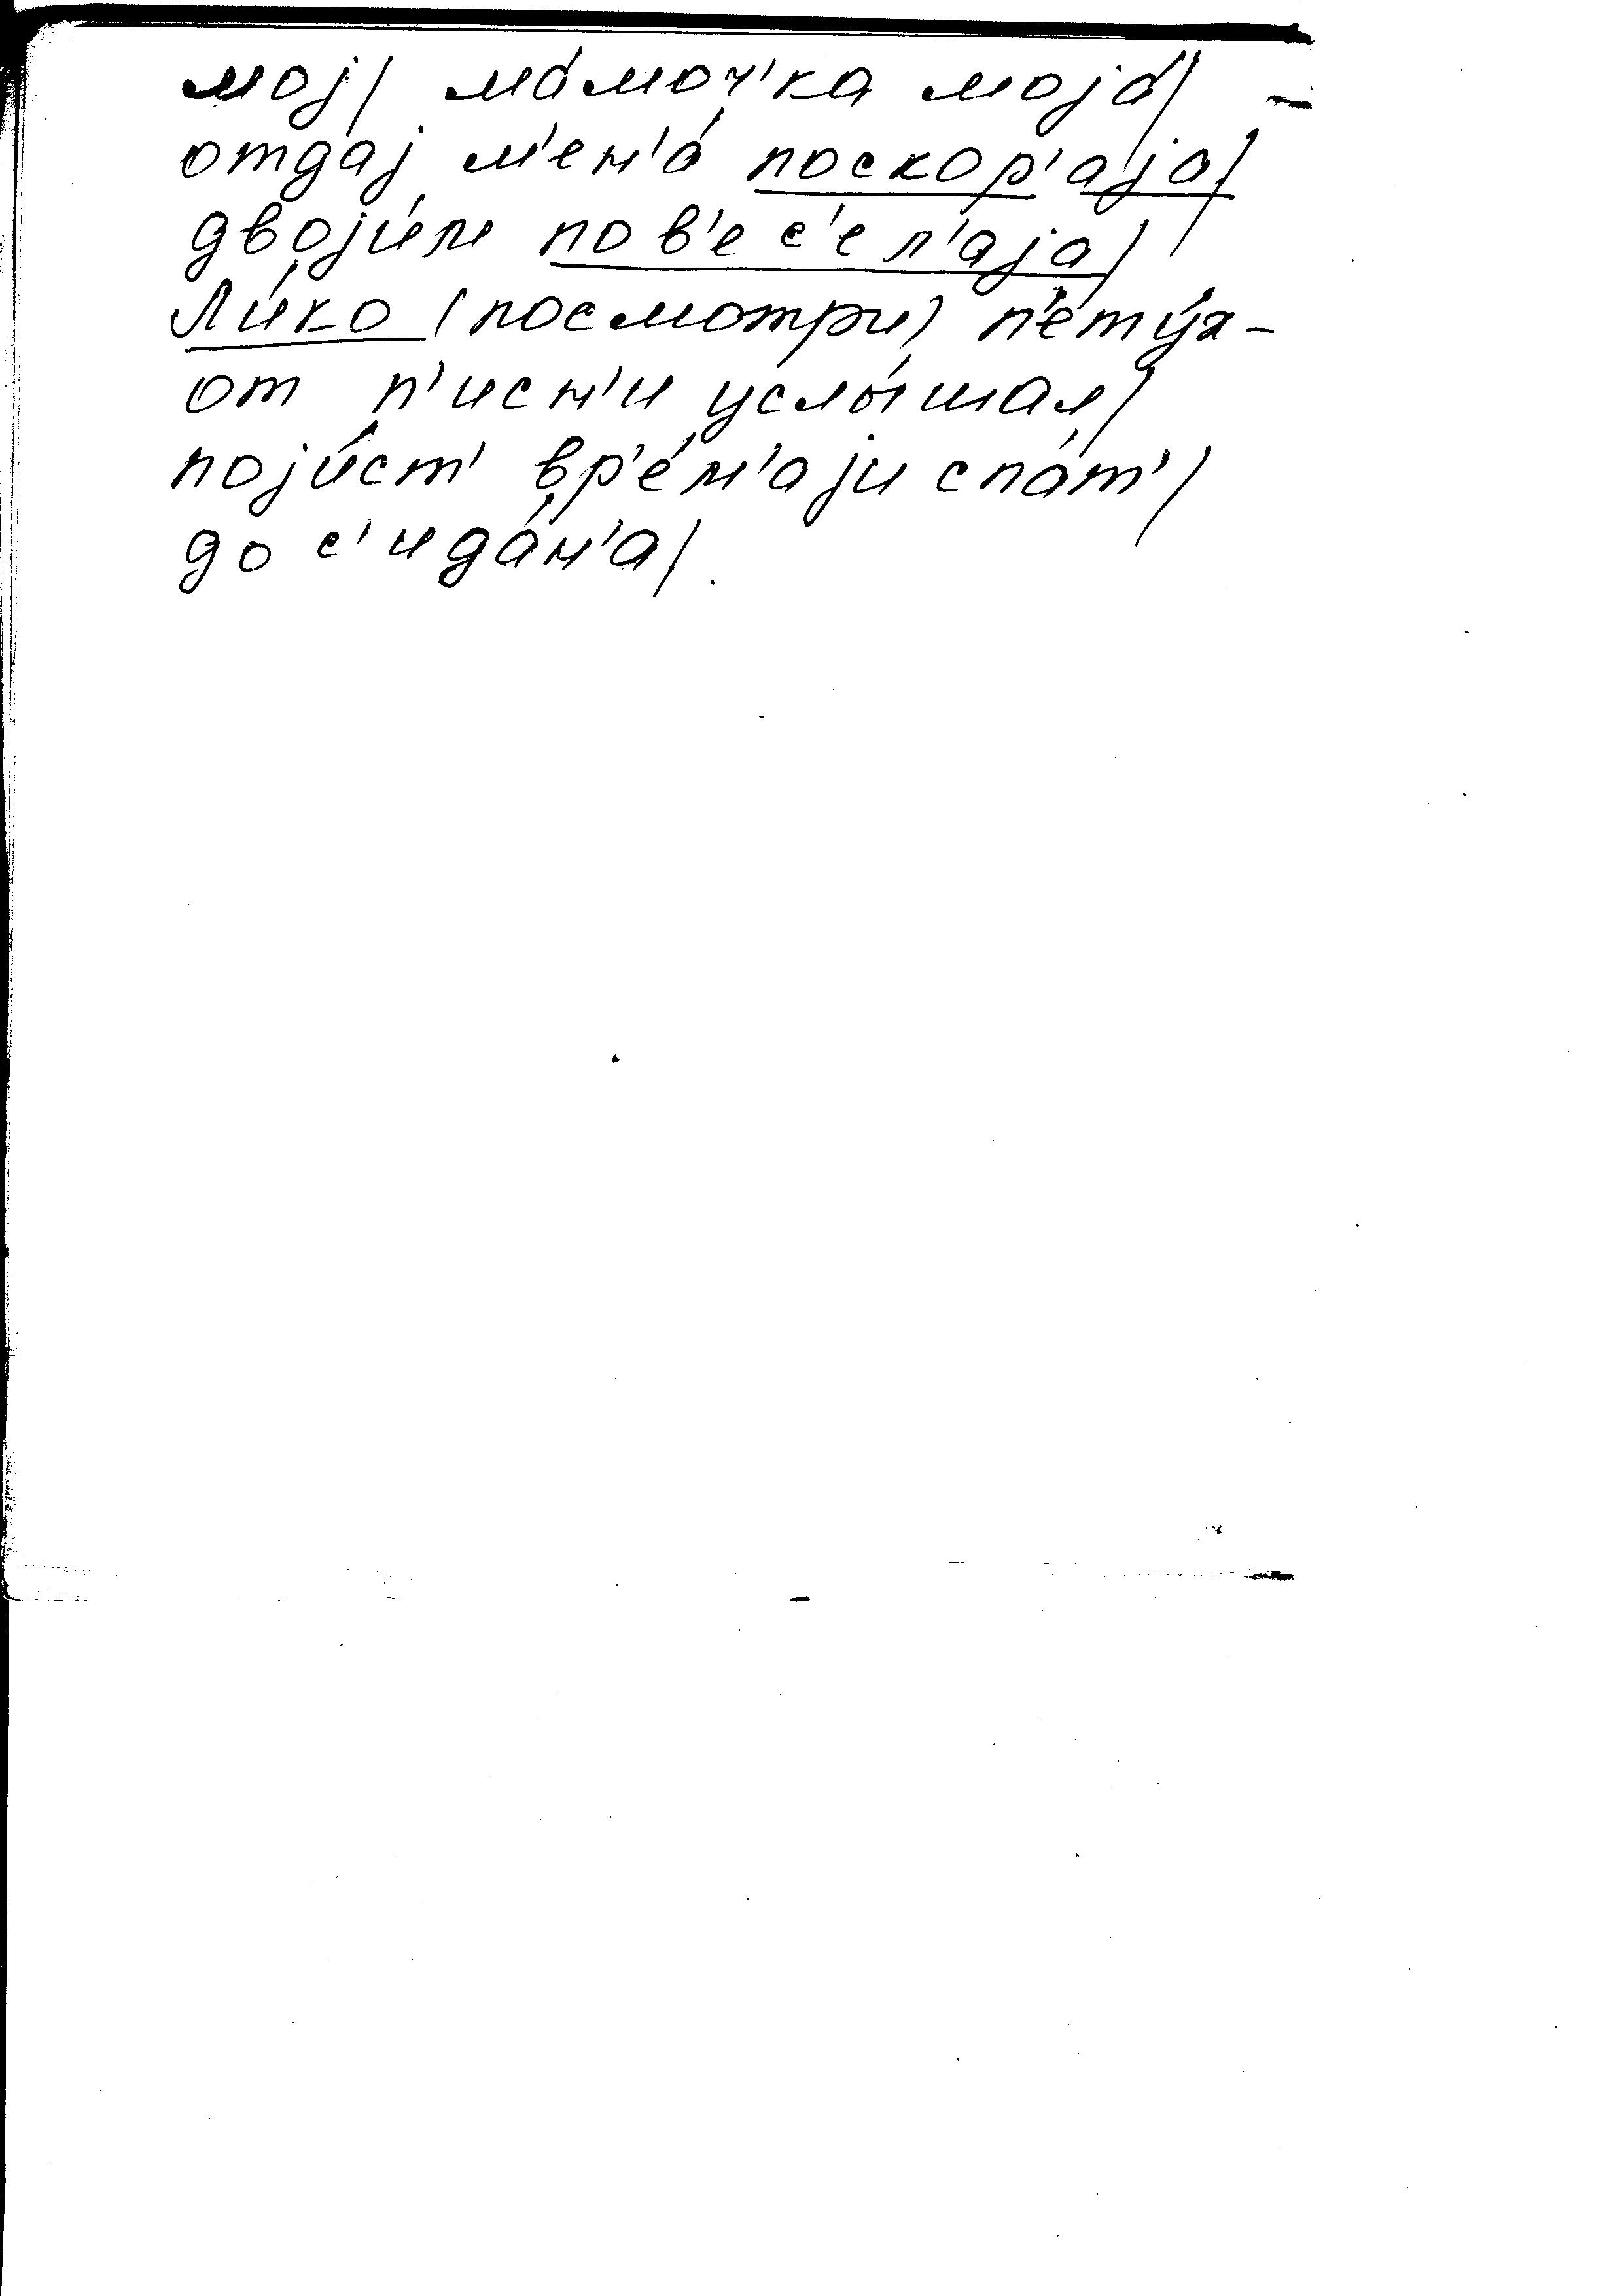 мој/ ма́моч'ка моја́/ –
отда́ј м'ен'а́ поскор'аја/
двоји́м пов'ес'ел'аја/
Ли́ко (посмотри) п'ету́х-
от п'исн'и услы́шал/
поји́ст' вр'е́м'аји спа́т'/
до с'ида́н'а/.